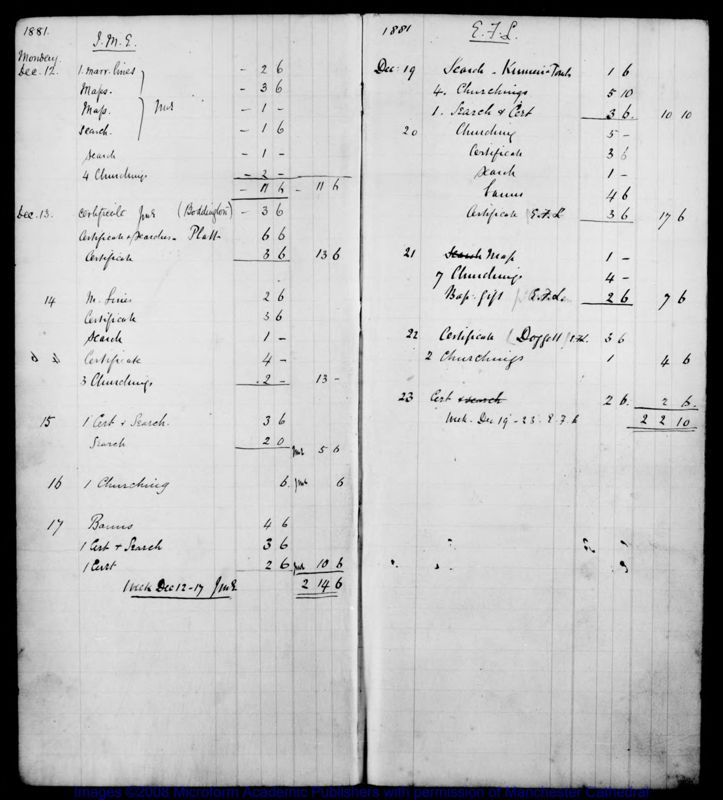 1881.
J. M. E.
Monday
Dec. 12. 1. marr. lines - 2 6
Maps. - 3 6
Map. JME - 1 -
Search. - 1 6
Search - 1 -
4 Churchings - 2 -
- 11 6 - 11 6
Dec. 13. Certificate JME (Boddington) - 3 6
Certificate & Searches - Platt - 6 6
Certificate 3 6 13 6
14 M. Lines 2 6
Certificate 3 6
Search 1 -
Certificate 4 -
3 Churchings . 2 - 13 -
15 1 Cert & Search. 3 6
Search 2 0 JME 5 6
16 1 Churching 6. JME 6
17 Banns 4 6
1 Cert & Search 3 6
1 Cert 2 6 JME 10 6
Week Dec 12-17 JME 2 14 6
1881
E. F. L.
Dec. 19 Search - 1 6
4. Churchings 5 10
1. Search & Cert 3 6. 10 10
20 Churching 5 -
Certificate 3 6
Search 1 -
Banns 4 6
Certificate E.F.L 3 6 17 6
21 Search Map 1 -
7 Churchings 4 -
Bap. gift E.F.L. 2 6 7 6
22 Certificate (Doggett) E.F.L. 3 6
2 Churchings 1 4 6
23 Cert & search 2 6. 2 6.
Week. Dec 19 - 23. E. F. L 2 2 10
Images ©2008 Microform Academic Publishers with permission of Manchester Cathedral